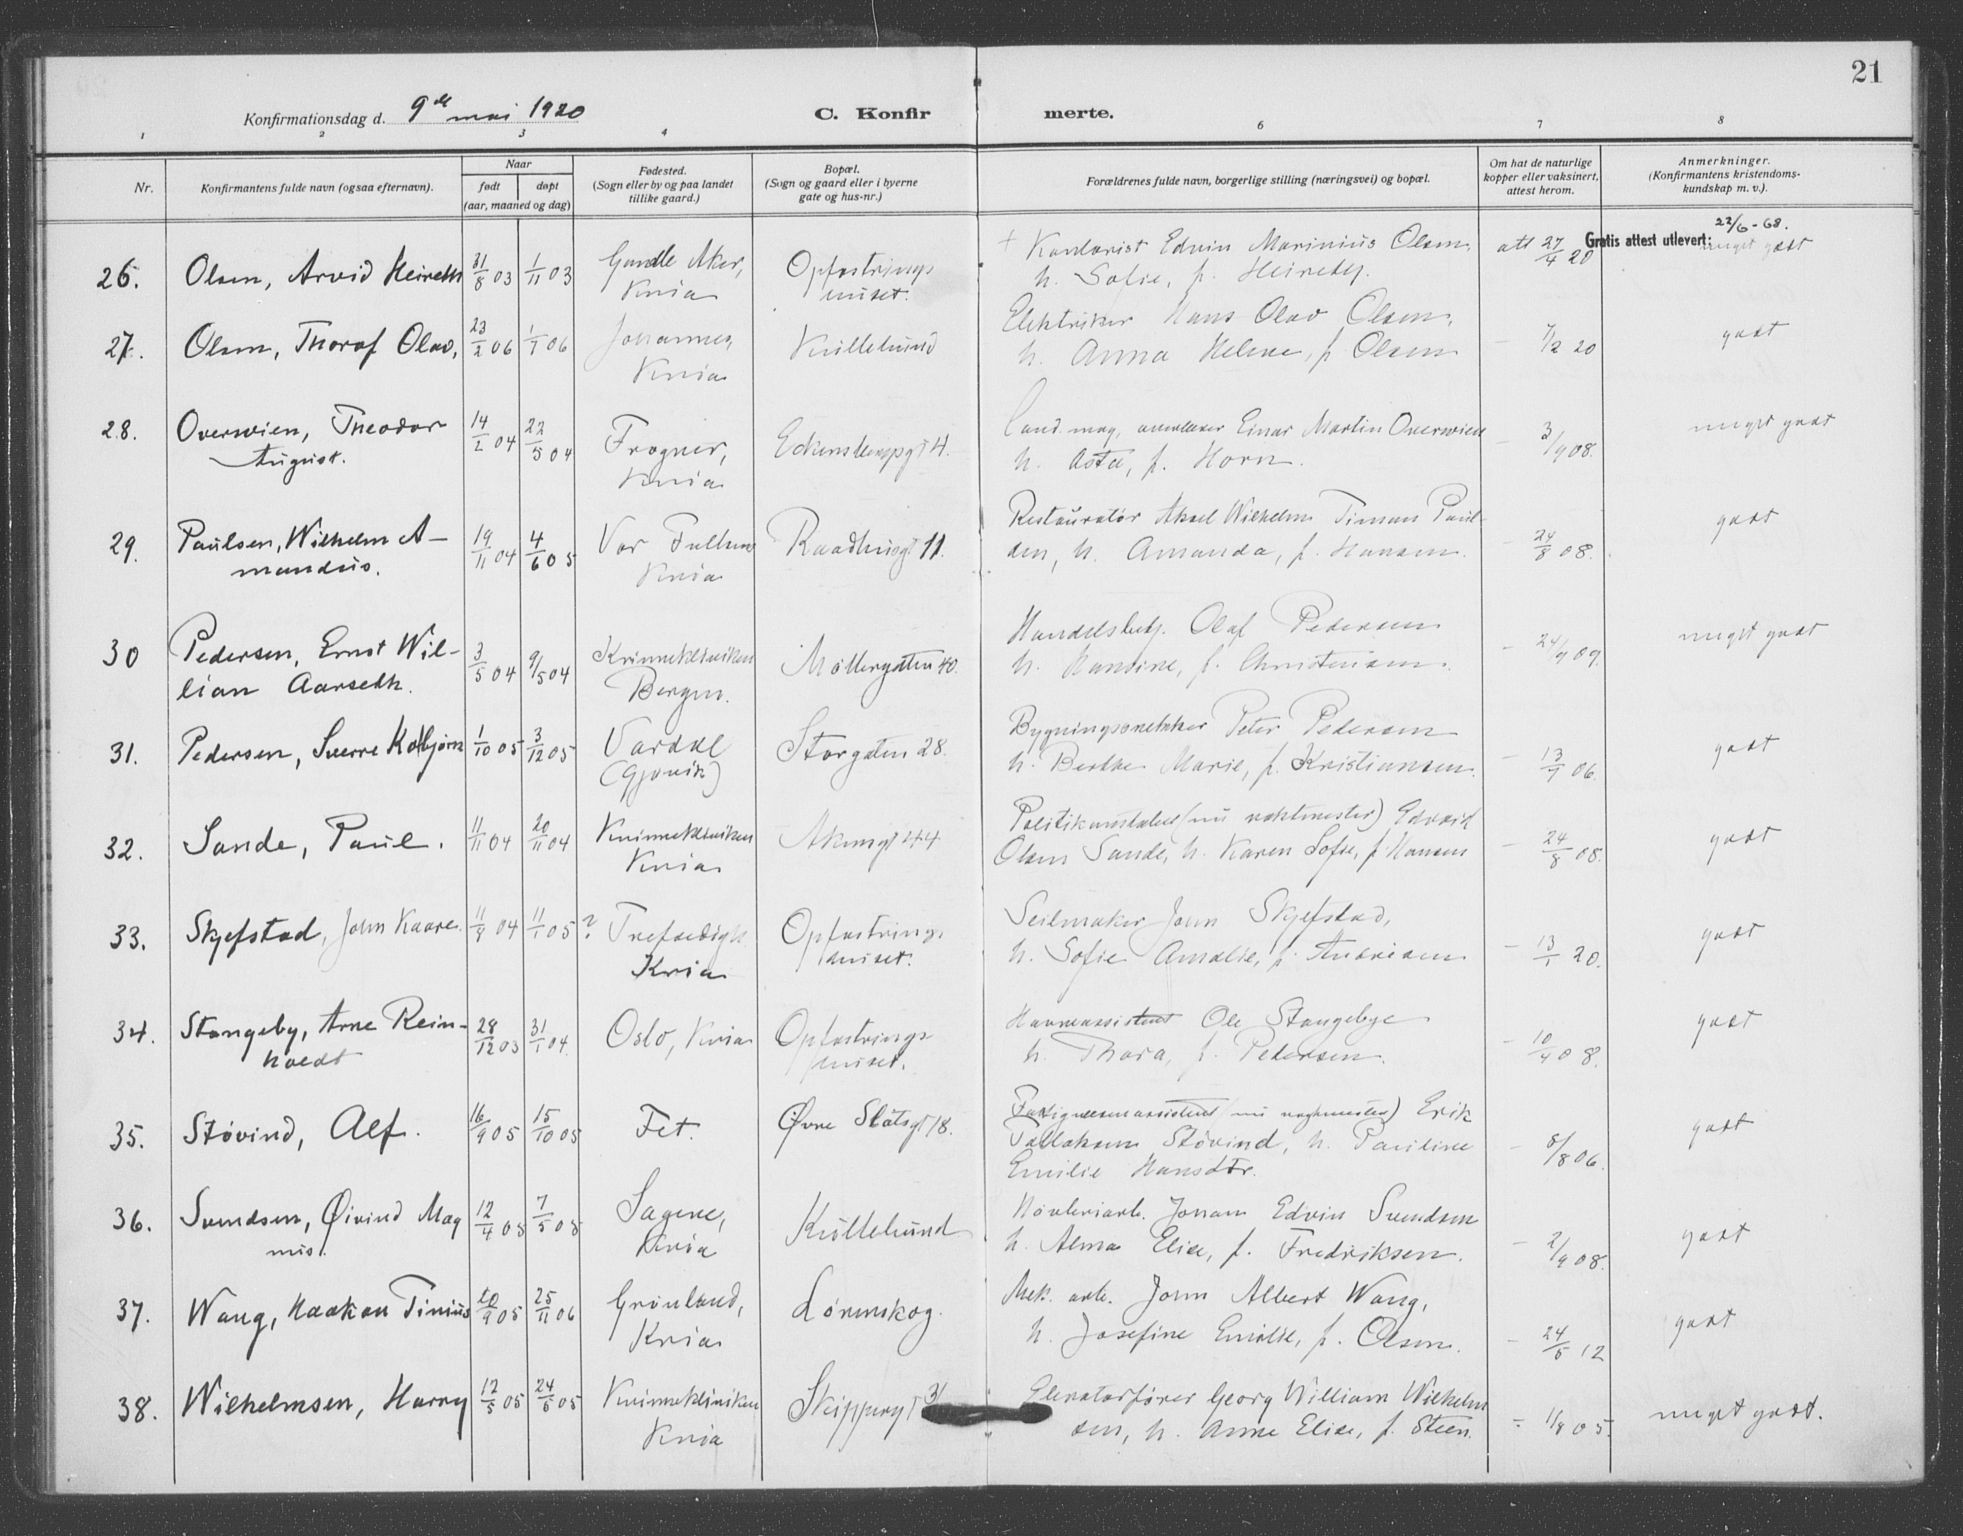 21
Konfirmationsdag d. 9de mai 1920
C. Konfirmerte.
1 2 3 4 6 7 8
Nr.
Konfirmantens fulde navn (ogsaa efternavn).
Naar
født døpt
(aar, maaned og dag)
Fødested.
(Sogn eller by og paa landet
tillike gaard.)
Bopæl.
(Sogn og gaard eller i byerne
gate og hus-nr.)
Forældrenes fulde navn, borgerlige stilling (næringsvei) og bopæl.
Om hat de naturlige
kopper eller vaksinert,
attest herom.
Anmerkninger.
(Konfirmantens kristendoms-
kundskap m. v.).
22/6-68.
Gratis attest utlevert:
26. Olsen, Arvid 31/8 03 1/11 03 Gamle Aker, Opfostrings + Kontorist Edvin Marinius Olsen, att 27/4 20 meget godt
Kria huset. h. Sofie, f.
27. Olsen, Thoraf Olav, 23/2 06 1/1 06 Johannes, Krillehund Elektriker Hans Olav Olsen, - 7/2 20 godt
Kria h. Anna Helene, f. Olsen
28. Overwien, Theodor 14/2 04 22/5 04 Frogner, Cand. mag. Einar Martin Overwien - 3/9 08. meget godt
August. Kria h. Asta, f. Horn.
29. Paulsen, Wilhelm A- 19/11 04 4/6 05 Vor Frelser Raadhusgt 11. Restauratør Aksel Wilhelm Timan Paul- - 24/8 08. godt
mandus. Kria sen, h. Amanda, f. Hansen.
30 Pedersen, Ernst Wil- 3/5 04 9/5 04 Kvinneklinikken Møllergaten 40. Handelsbetj. Olaf Pedersen - 24/9 09. meget godt
lian Aarseth. Bergen. h. f. Christensen.
31. Pedersen, Sverre Kolbjørn 1/10 05 3/12 05 Vardal Storgaten 28. Bygningssnekker Peter Pedersen - 13/9 06. godt
(Gjøvik) h. Berthe Marie, f. Kristiansen.
32. Sande, Paul. 11/11 04 20/11 04 Kvinneklinikken Akersgt 44 Politikonstabel (nu vaktmester) Edvard - 24/8 08. godt
Kria Olsen Sande, h. Karen Sofie, f. Hansen
33. Skjefstad, John Kaare. 11/9 04 11/1 05 ? Trefoldigh. Opfostrings Seilmaker John Skjefstad, - 13/1 20. godt
Kria huset. h. Sofie Amalie, f. Andresen
34. Stangeby, Arne Rein- 28/12 03 31/1 04. Oslo, Kria Opfostrings Havneassistent Ole Stangebye - 10/4 08. godt
holdt huset. h. Thora, f. Pedersen.
35. Støvind, Alf. 16/9 05 15/10 05 Fet. Øvre Slotsgt 18. Erik - 8/8 06. godt
Støvind, h. Pauline
Emilie Hansdtr.
36. Svendsen, Øivind Mag 12/4 05 7/5 05 Sagene, Krillehund Høvleriarb. Johan Edvin Svendsen - 2/9 08. godt
nus. Kria h. Alma Elise, f. Fredriksen.
37. Wang, Haakon Tinius 20/9 05 25/11 06 Grønland, Lørenskog. Mek. arb. John Albert Wang, - 24/5 12 godt
Kria h. Josefine Emilie, f. Olsen.
38. Wilhelmsen, Harry 12/5 05 24/6 05 Kvinneklinikken Skippergt 31 Elevatorfører Georg William Wilhelm - 1/8 05. meget godt.
Kria sen, h. Anne Elise, f. Steen.